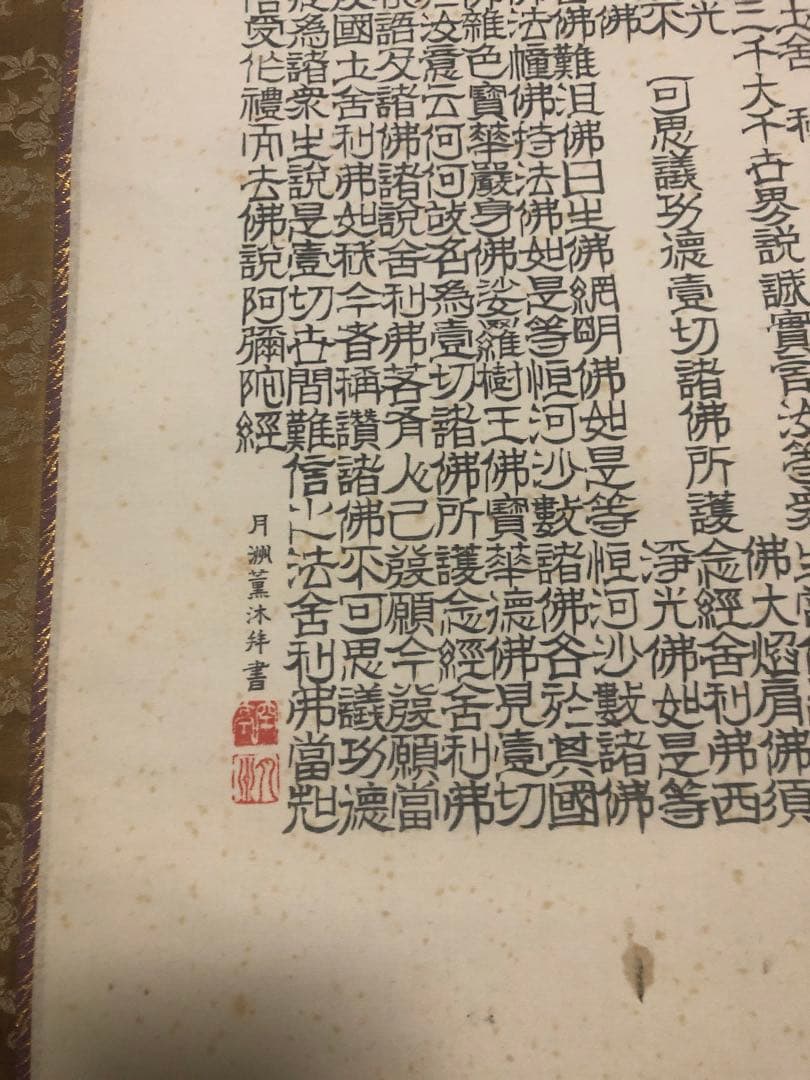 土舍利
三千大千世界說誠實言汝等受
佛大焰肩佛須
光
可思議功德壹切諸佛所護念經舍利弗西
不
淨光佛如是等
佛
佛難沮佛日生佛網明佛如是等恒河沙數諸佛
法幢佛持法佛如是等恒河沙數諸佛各於其國
佛雜色寶華嚴身佛娑羅樹王佛寶華德佛見壹切
汝意云何何故名為壹切諸佛所護念經舍利弗
語及諸佛諸說舍利弗若有人已發願今發願當
國土舍利弗如我今者稱讚諸佛不可思議功德
為諸眾生說是壹切世間難信之法舍利弗當知
信受作禮而去佛說阿彌陀經
月淵薰沐拜書